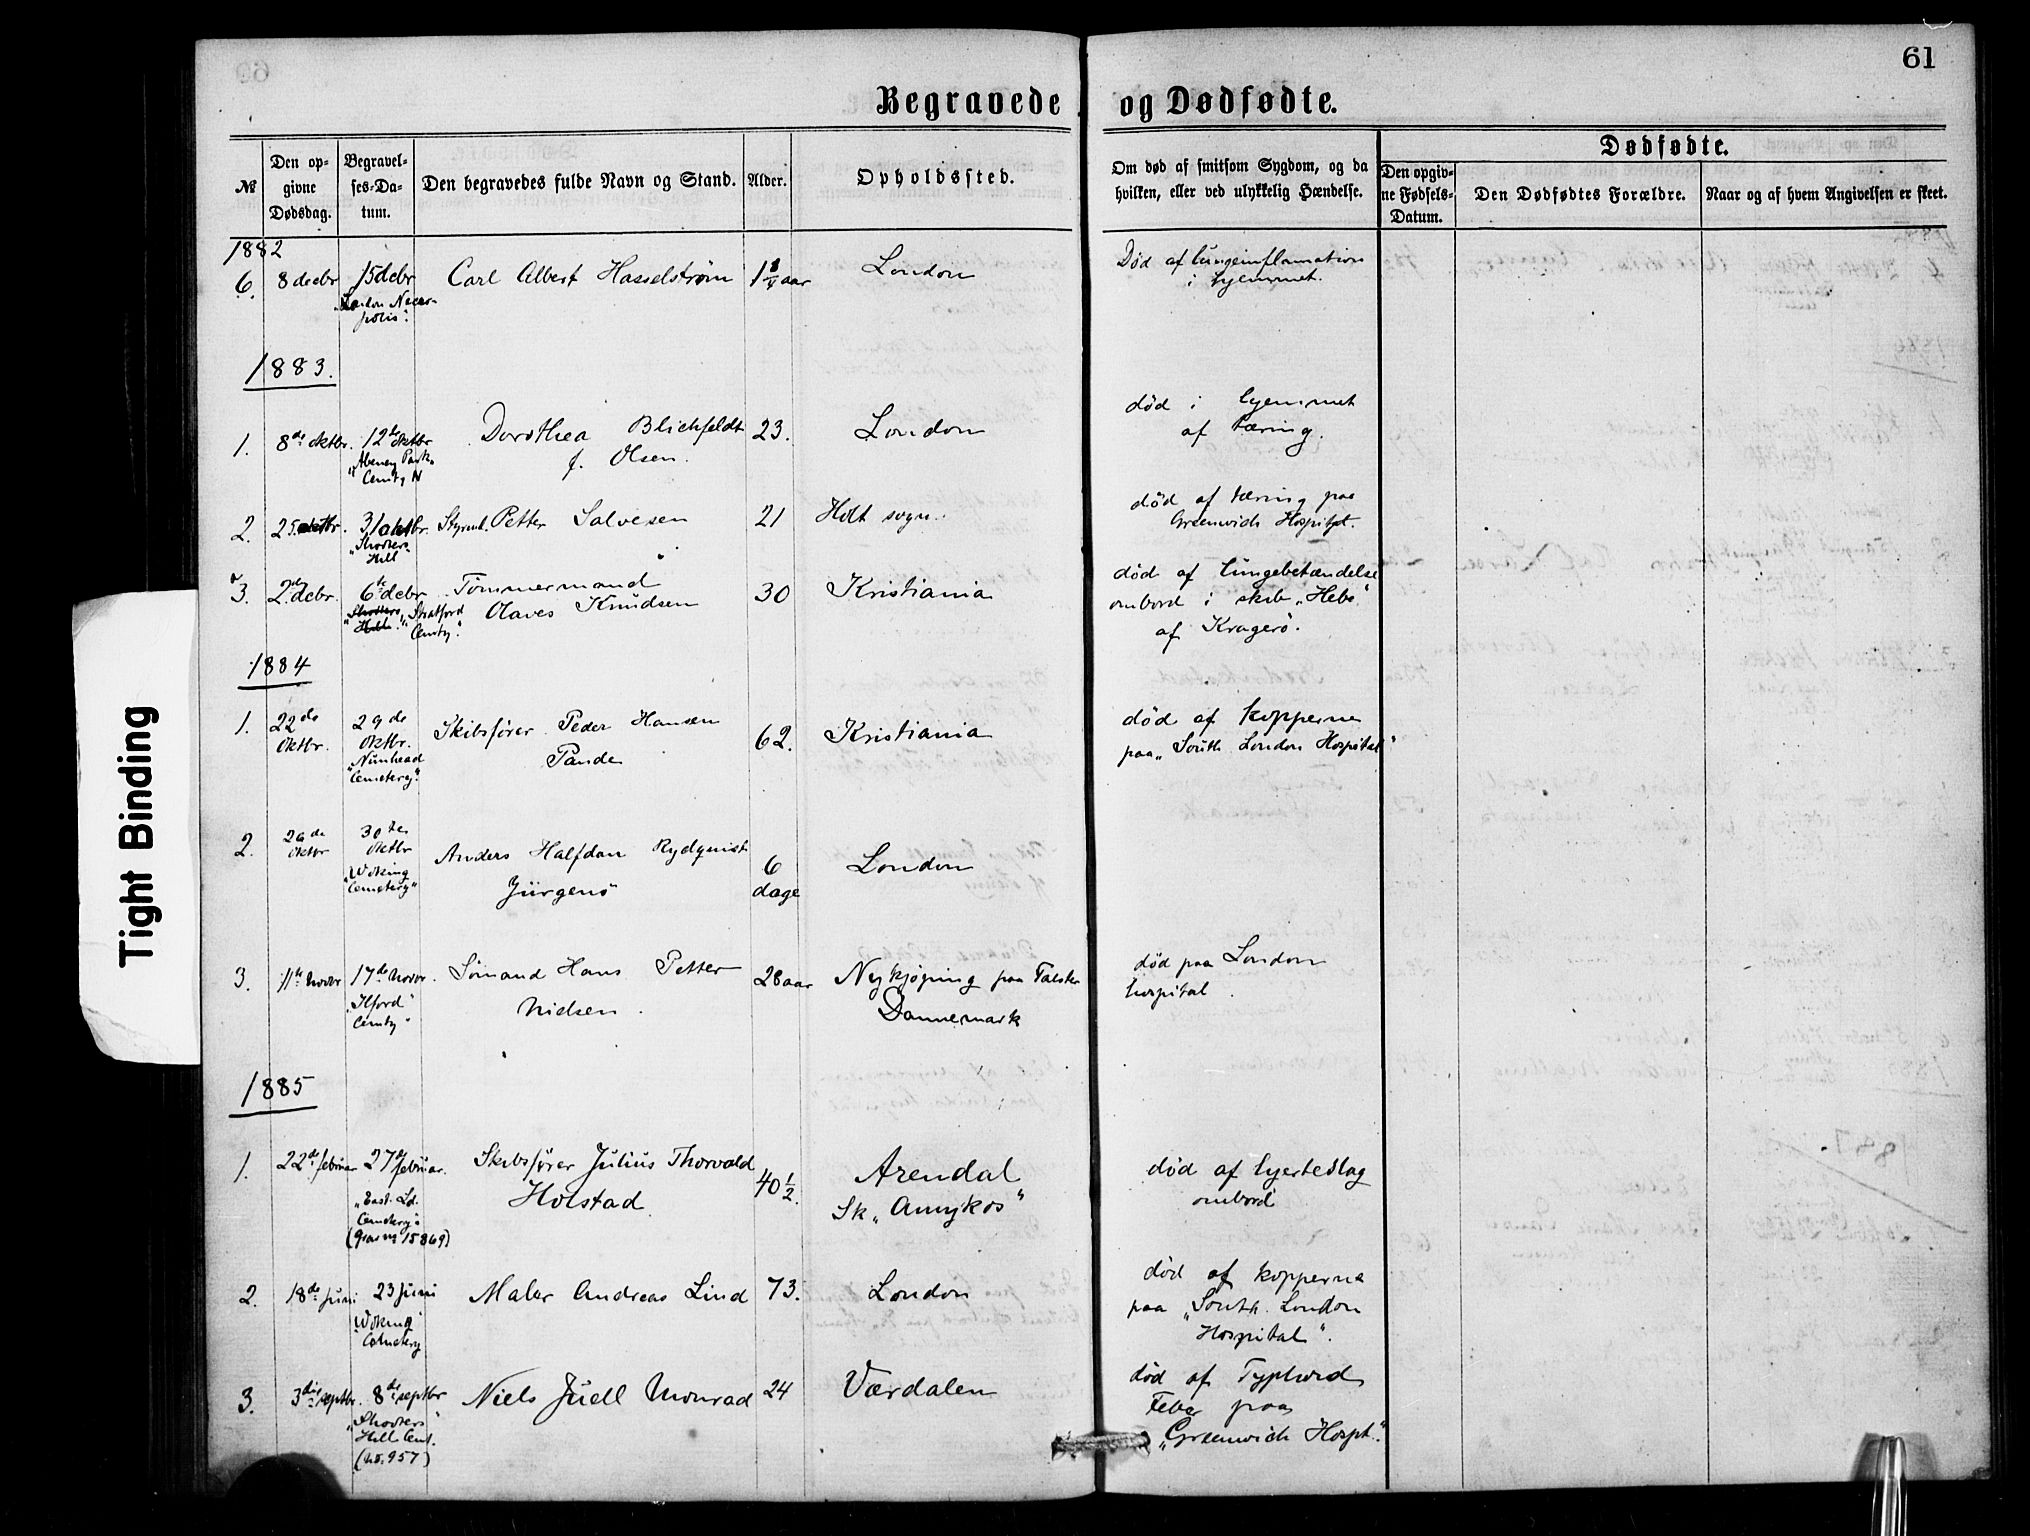 61
Begravede og Dødfødte.
№ Den opgivne Dødsdag. Begravelses-Datum. Den begravedes fulde Navn og Stand. Alder. Opholdssted. Om død af smitsom Sygdom, og da hvilken, eller ved ulykkelig Hændelse.
Dødfødte.
Den opgivne Fødsels-Datum. Den Dødfødtes Forældre. Naar og af hvem Angivelsen er skeet.
1882
6. 8 decbr 15 decbr Carl Albert Hasselstrøm aar London Død af lungeinflamation
"London Necropolis". i hjemmet.
1883.
1. 8de oktbr. 12te oktbr Dorothea Blichfeldt 23. London død i hjemmet
"Abney Park" f. Olsen. af tæring.
Cemty N
2. 25 oktbr. 31 oktbr. Styrmd. Petter Salvesen 21 Holt sogn. død af tæring paa
"Shooters Greenwich Hospital.
Hill
3. 2den decbr. 6te decbr Tømmermand 30 Kristiania død af lungebetændelse
"Shooters Hill" "Stratford Olaves Knudsen ombord i skib "Hebe"
Cemty". af Kragerö.
1884
1. 22de oktbr. 29de oktbr. Skibsfører Peder Hansen 62. Kristiania død af kopperne
"Nunhead Pande paa "South London Hospital"
Cemetery".
2. oktbr 30te oktbr Anders Halfdan Rydquist 6 London
"Woking Jürgens dage
Cemetery"
3. 11te novbr 17de novbr. Sömand Hans Petter 28 aar Nykjøping paa Falster død paa London
"Ilford Nielsen. Dannemark hospital.
Cemty"
1885
1. 22de februar 27de februar. Skibsfører Julius Thorvald 40½. Arendal død af hjerteslag
"East. Ld. Holstad Sk "Amykos" ombord
Cemetery"
(Grav no 15869)
2. 18de juni 23 juni Maler Andreas Lind 73. London død af kopperne
Woking paa "South. London
Cemetery Hospital".
3. 3die septbr. 8de septbr Niels Juell Monrad 24 Værdalen død af Typhoid
"Shooters Feber paa
Hill Cemt. "Greenwich Hospt."
(no. 957)
Tight Binding